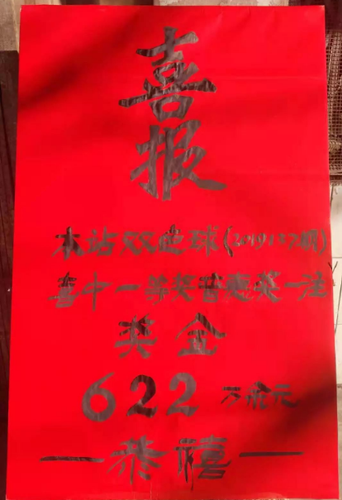 喜报
本站双色球(2019127期)
喜中一等奖普通奖一注
奖金
622万余元
—恭禧—